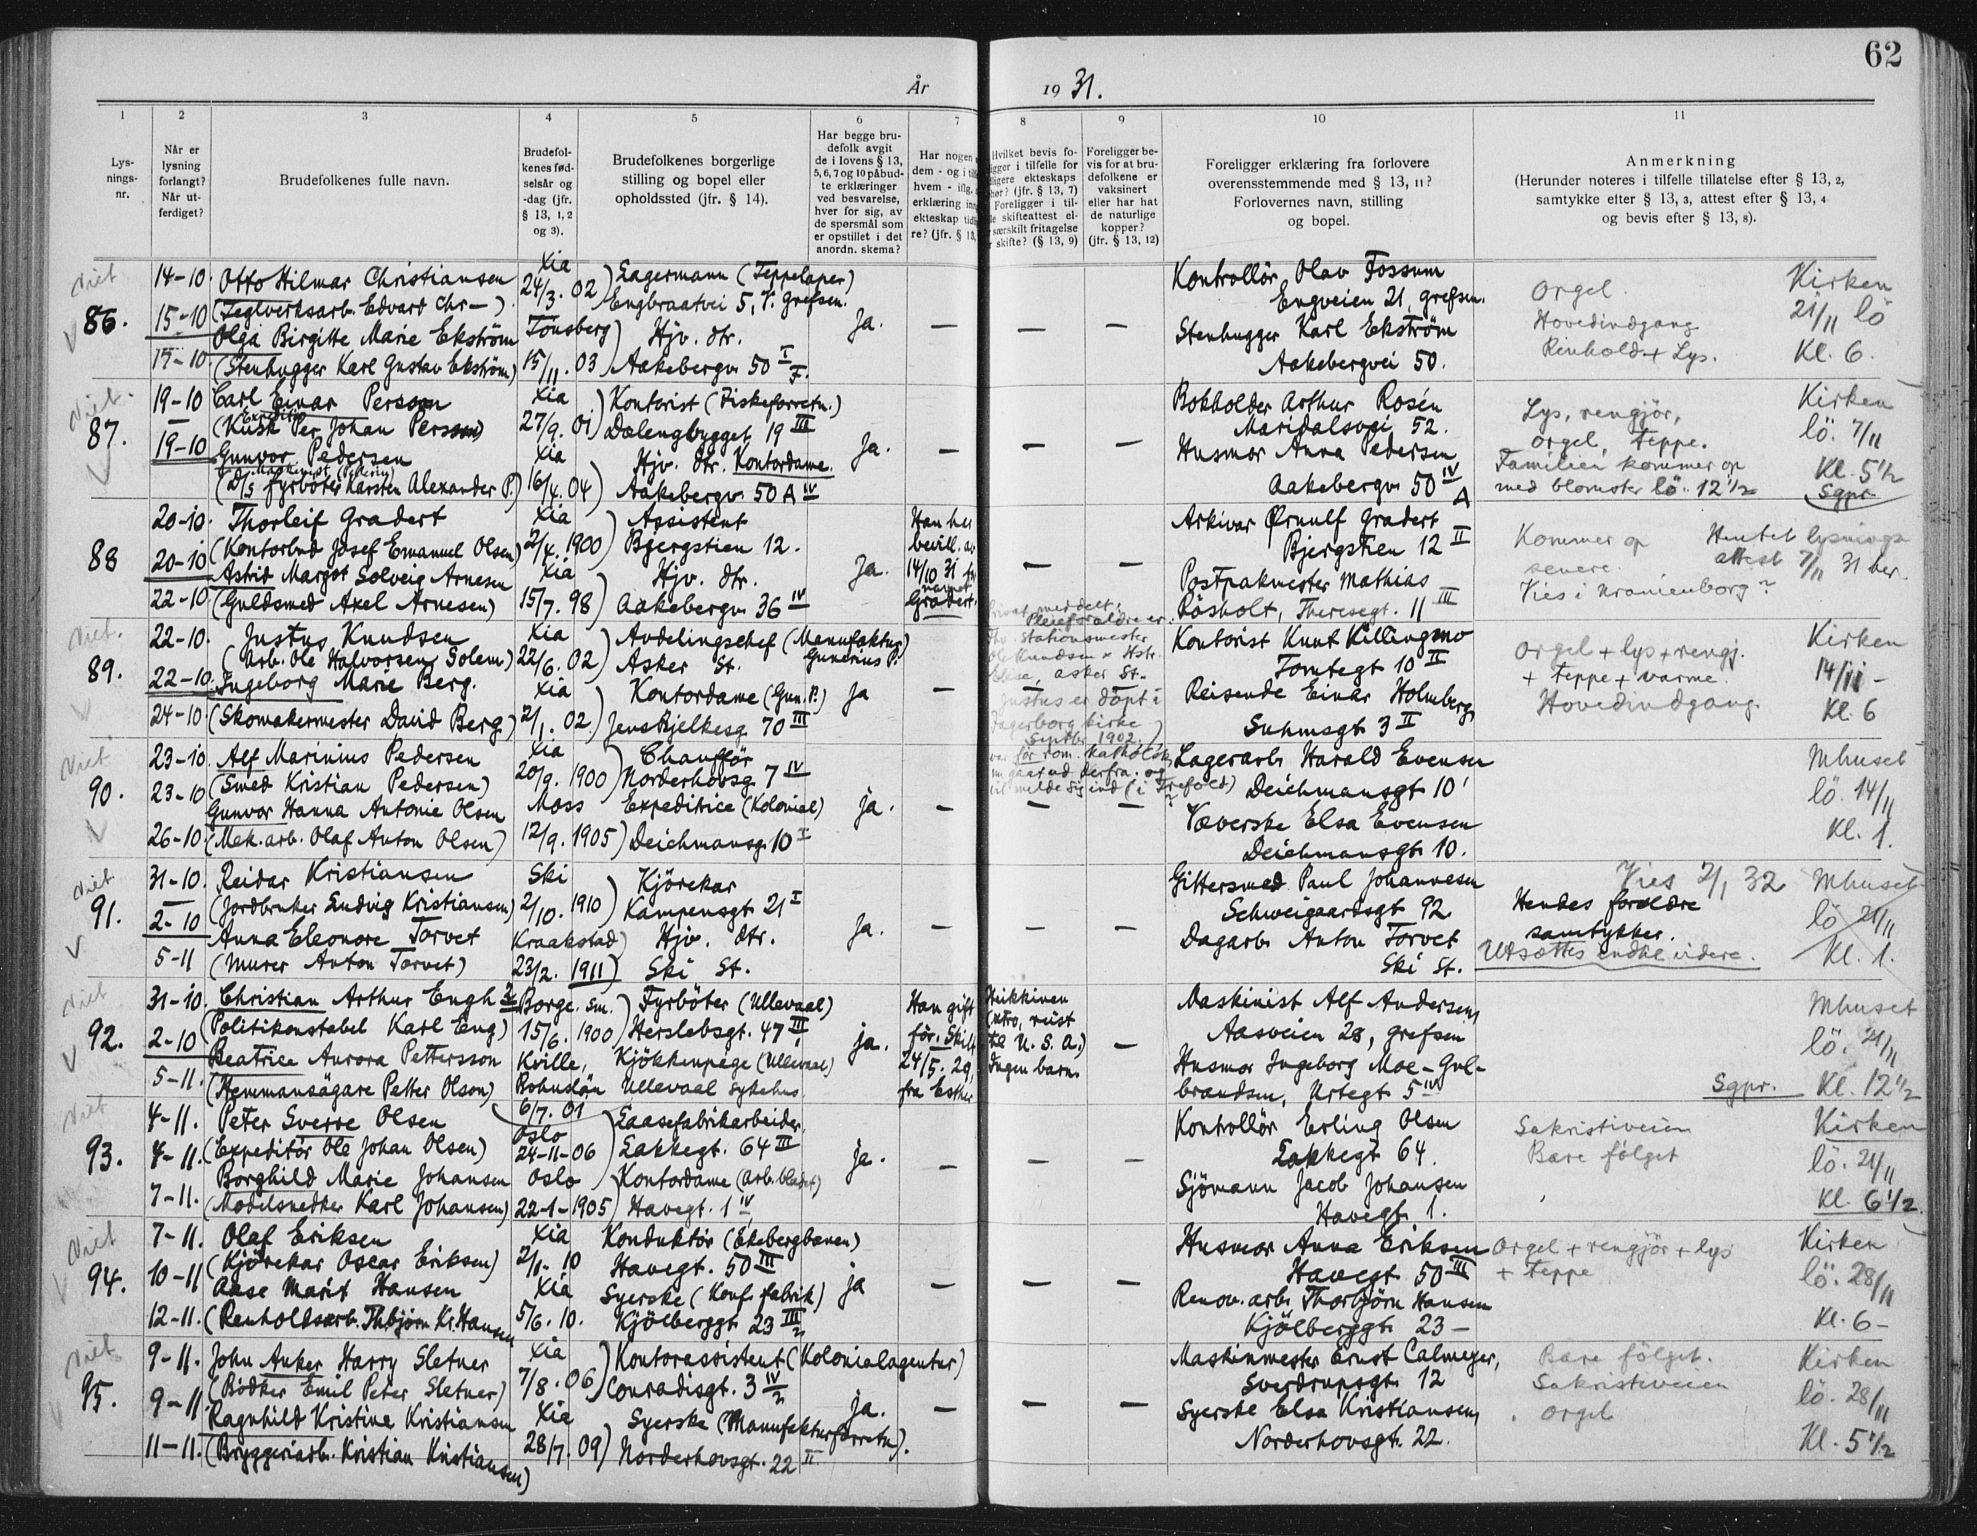 62
År 1931.
1 2 3 4 5 6 7 8 9 10 11
Lys-
nings-
nr.
Når er
lysning
forlangt?
Når ut-
ferdiget?
Brudefolkenes fulle navn.
Brudefol-
kenes fød-
selsår og
-dag (jfr.
§ 13, 1, 2
og 3).
Brudefolkenes borgerlige
stilling og bopel eller
opholdssted (jfr. § 14).
Har begge bru-
defolk avgit
de i lovens § 13,
5, 6, 7 og 10 påbud-
te erklæringer
ved besvarelse,
hver for sig, av
de spørsmål som
er opstillet i det
anordn. skema?
Har nogen
dem - og i
hvem - iflg.
erklæring
ekteskap
re? (jfr. § 13,
Hvilket bevis fo-
ligger i tilfelle for
ekteskaps
(jfr. § 13, 7)
Foreligger i til-
skifteattest el-
særskilt fritagelse
skifte? (§ 13, 9)
Foreligger be-
vis for at bru-
defolkene er
vaksinert
eller har hat
de naturlige
kopper?
(jfr. § 13, 12)
Foreligger erklæring fra forlovere
overensstemmende med § 13, 11?
Forlovernes navn, stilling
og bopel.
Anmerkning
(Herunder noteres i tilfelle tillatelse efter § 13, 2,
samtykke efter § 13, 3, attest efter § 13, 4
og bevis efter § 13, 8).
Viet
86.
14-10.
15-10
15-10.
Otto Hilmar Christiansen
(Teglverksarb. Edvard Chr-)
Olga Birgitte Marie Ekström
(Stenhugger Karl Gustav Ekström)
Xia
24/3. 02)
Tönsberg
15/11. 03)
Lagermann (Teppelager)
Engbraatvei 5, V. Grefsen.
Hjv. dtr.
Aakebergv. 50 I F.
Ja.
Kontrollör Olav Fossum
Engveien 21, Grefsen.
Stenhugger Karl Ekström
Aakebergvei 50.
Orgel.
Hovedindgang
Renhold + Lys.
Kirken
21/11 lö
Kl. 6.
Viet.
87.
19-10
19-10
Carl Einar Persson
Expeditör
(Kusk Per Johan Persson)
Gunvor Pedersen
(D/S fyrböter Karsten Alexander P.)
Xia
27/9. 01)
Xia
16/4. 04)
Kontorist (Fiskeforretn.)
Dælengbygget 19 III
Hjv. dtr. Kontordame.
Aakebergv. 50 A IV
Ja.
Bokholder Arthur Rosén
Maridalsvei 52.
Husmor Anna Pedersen
Aakebergv. 50 IV A
Lys, rengjör,
orgel, teppe.
Familien kommer op
med blomster lö. 12 1/2
Kirken
lö. 7/11
Kl. 5 1/2
Sgpr.
88
20-10.
20-10
22-10
Thorleif Gradert
(Kontorbud Josef Emanuel Olsen)
Astrid Margot Solveig Arnesen
(Guldsmed Axel Arnesen)
Xia
2/4. 1900)
Xia
15/7. 98)
Assistent
Bjergstien 12.
Hjv. dtr.
Aakebergv. 36 IV
Ja.
Han har
bevill. av
14/10 31 for
navnet
Gradert.
Arkivar Ørnulf Gradert
Bjergstien 12 II
Postpakmester Mathias
Rösholt, Theresegt. 11 III
Kommer op
senere.
Hentet lysnings
attest 7/11 31 her.
Vies i Uranienborg?
Viet.
89.
22-10.
22-10.
24-10
Justus Knudsen
(Arb. Ole Halvorsen Solem)
Ingeborg Marie Berg.
(Skomakermester David Berg)
Xia
22/6. 02)
Xia
2/1. 02.)
Avdelingschef (Manufaktur)
Asker St. Gunerius P.
Kontordame (Gun. P.)
Jens Bjelkesg. 70 III
Ja
Privat meddelt:
Pleieforældre er
fhv. Stationsmester
Ole Knudsen & Hstr.
Elise, Asker St.
Justus er döpt i
Fagerborg kirke
Septbr 1902.)
Kontorist Knut Killingmo
Tomtegt. 10 II
Reisende Einar Holmberg
Suhmsgt. 3 II
Orgel + lys + rengj.
+ teppe + varme.
Hovedindgang.
Kirken
14/11 -
Kl. 6
Viet
90.
23-10.
23-10
26-10.
Alf Marinius Pedersen
(Smed Kristian Pedersen)
Gunvor Hanna Antonie Olsen
(Mek. arb. Olaf Anton Olsen)
Xia
20/9. 1900)
Moss
12/9. 1905)
Chauffför
Norderhovsg. 7 IV
Expeditrice (Kolonial)
Deichmansg. 10 I
ja.
var för rom. katholsk
gaar ud derfra. og
vil melde sig ind (i Trefold)
Lagerarb. Harald Evensen
Deichmansgt. 10
Væverske Elsa Evensen
Deichmansgt. 10.
Mhuset
lö. 14/11
Kl. 1.
Viet
91.
31-10.
2-10
5-11
Reidar Kristiansen
(Jordbruker Ludvig Kristiansen)
Anna Eleonore Torvet
(Murer Anton Torvet)
Ski
2/10. 1910)
Kraakstad)
23/2. 1911)
Kjörekar
Kampensgt. 21 I
Hjv. dtr.
Ski St.
Ja.
Gittersmed Paul Johannesen
Schweigaardsgt. 92
Dagarb. Anton Torvet
Ski St.
Vies 2/1 32
Hendes forældre
samtykker.
Utsættes indtil videre.
Mhuset
lö 21/11
Kl. 1.
Viet
92.
31-10.
2-10
5-11.
Christian Arthur Engh
(Politikonstabel Karl Eng)
Beatrice Aurora Pettersson
(Hemmansägare Petter Olson)
Borge. Sm.
15/6. 1900)
Kville,
Bohuslän
6/7. 01
Fyrböter (Ullevaal)
Herslebsgt. 47 III
Kjökkenpige (Ullevaal)
Ullevaal Sykehus
ja.
Han gift
för. Skilt
24/5. 29,
fra Esther
Heikkinen
(utro, reist
til U. S. A.)
Ingen barn.
Maskinist Alf Andersen,
Aasveien 28, Grefsen
Husmor Ingeborg Moe-Gul-
brandsen, Urtegt. 5 IV
Sgpr.
Mhuset
lö. 21/11
Kl. 12 1/2
Viet
93.
4-11.
4-11.
7-11.
Peter Sverre Olsen
(Expeditör Ole Johan Olsen)
Borghild Marie Johansen
(Modelsnedker Karl Johansen)
Oslo
24-11-06
Oslo
22-1-1905)
Laasefabrikarbeider.
Lakkegt. 64 III
Kontordame (Arb. bladet)
Havegt. 1 IV
Ja.
Kontrollör Erling Olsen
Lakkegt. 64.
Sjömann Jacob Johansen
Havegt. 1.
Sakristiveien
Bare fölget
Kirken
lö. 21/11
Kl. 6 1/2.
Viet
94.
7-11.
10-11
12-11.
Olaf Eriksen
(Kjörekar Oscar Eriksen)
Aase Marit Hansen
(Renholdsarb. Thbjörn Kr. Hansen
Xia
2/11. 10
Xia
5/6. 10.
Konduktör (Ekebergbanen)
Havegt. 50 III
Syerske (Konf. fabrik)
Kjölberggt. 23 III
ja
Husmor Anna Eriksen
Havegt. 50 III
Renov. arb. Thorbjörn Hansen
Kjölberggt. 23-
Orgel + rengjör + lys
+ teppe
Kirken
lö. 28/11
Kl. 6-
Viet
95.
9-11.
9-11
11-11.
John Anker Harry Sletner
(Bödker Emil Peter Sletner)
Ragnhild Kristine Kristiansen
(Bryggeriarb. Kristian Kristiansen)
Xia
7/8. 06)
Xia
28/7. 09)
Kontorassistent (Kolonialagentur)
Conradisgt. 3 IV
Syerske (Manufakturforretn.).
Norderhovsgt. 22 II
ja.
Maskinmester Ernst Calmeyer,
Sverdrupsgt. 12
Syerske Elsa Kristiansen,
Norderhovsgt. 22.
Bare fölget.
Sakristiveien
Orgel
Kirken
lö. 28/11
Kl. 5 1/2